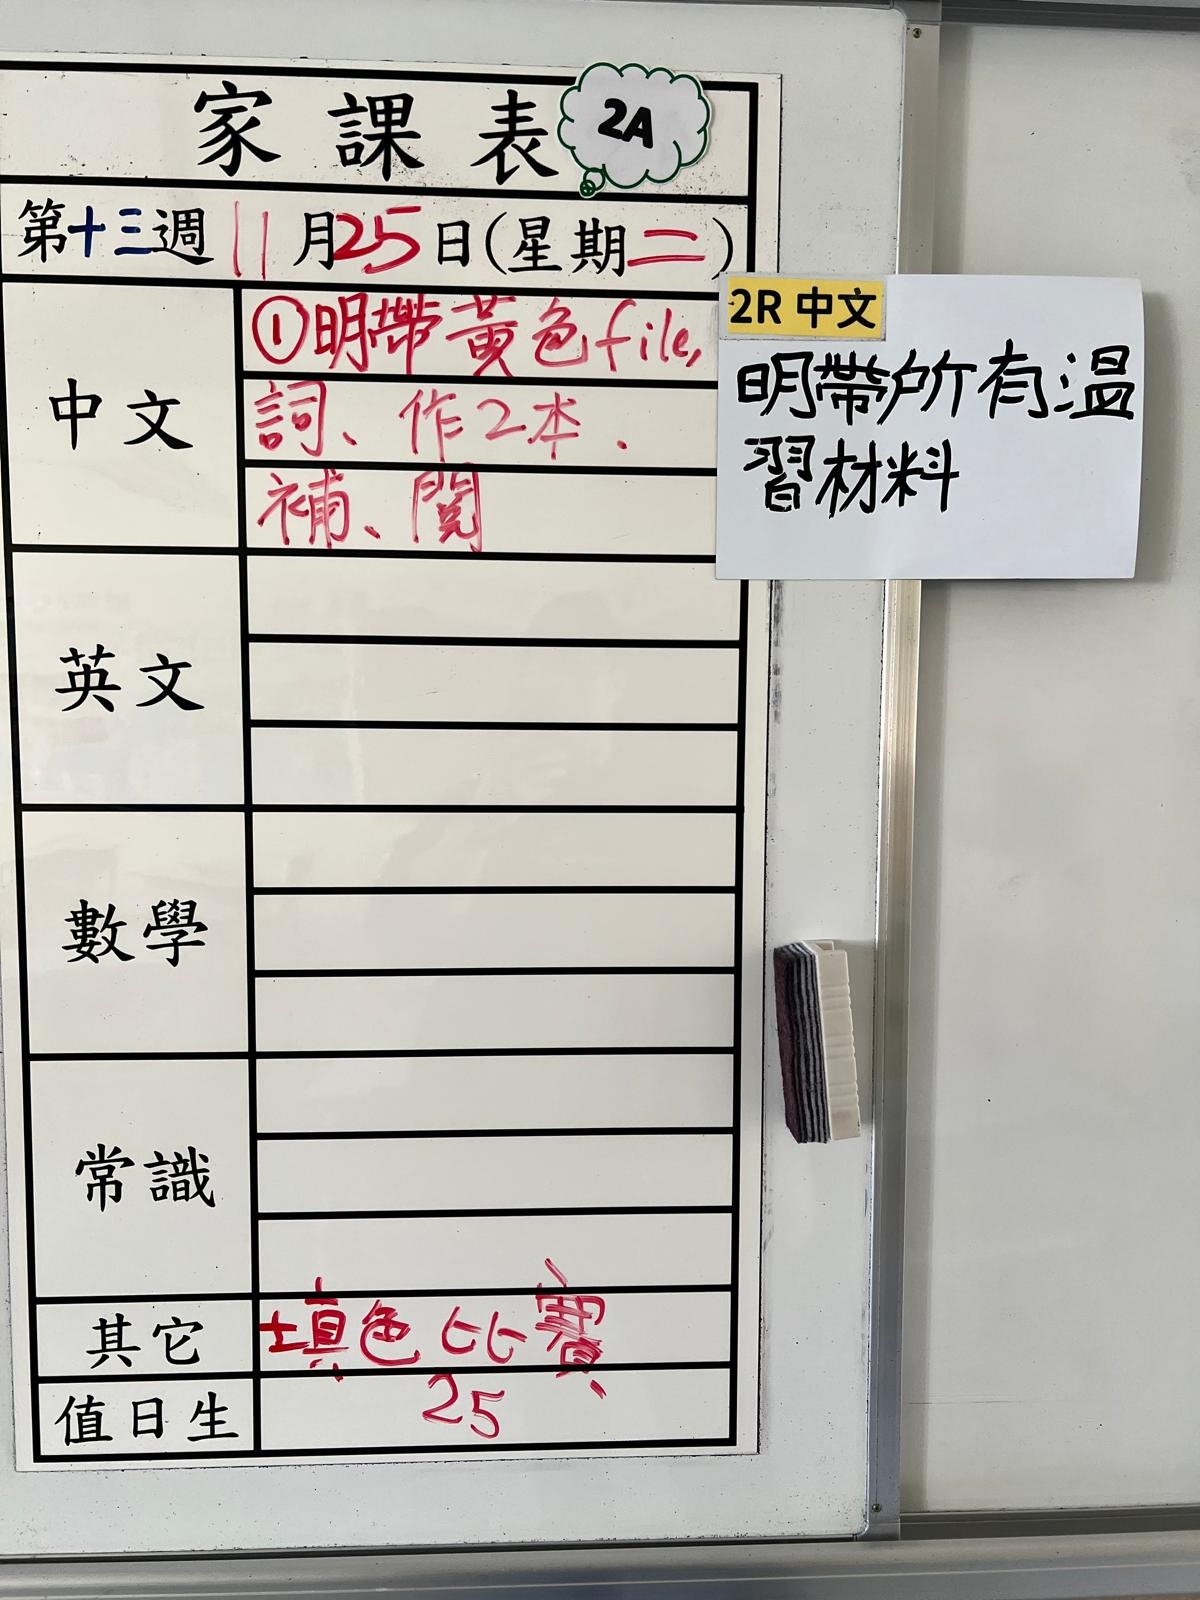 家課表 2A
第十三週 11月25日(星期二)
中文
①明帶黃色file,
詞、作2本.
補、閱
2R 中文
明帶所有溫
習材料
英文
數學
常識
其它 填色比賽
值日生 25